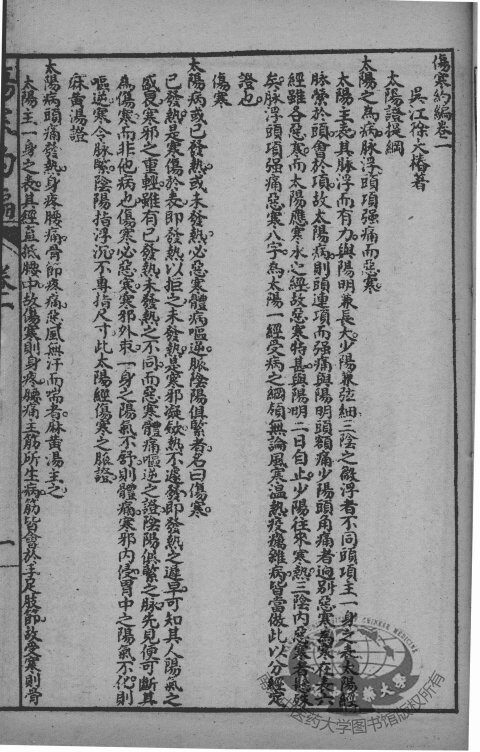 傷寒約編卷一
吳江徐大椿著
太陽證提綱
太陽之為病脉浮頭項强痛而惡寒
太陽主表其脉浮而有力與陽明兼長大少陽兼弦細三陰之微浮者不同頭項主一身之表太陽經
脉縈於頭會於項故太陽病則頭連項而强痛與陽明頭額痛少陽頭角痛者迥別惡寒為寒在表六
經雖各惡寒而太陽應寒水之經故惡寒特甚與陽明二日自止少陽往來寒熱三陰內惡寒者懸殊
矣脉浮頭項强痛惡寒八字為太陽一經受病之綱領無論風寒溫熱疫癘雜病皆當倣此以分經定
證也
傷寒
太陽病或已發熱或未發熱必惡寒體痛嘔逆脉陰陽俱緊者名曰傷寒
已發熱是寒傷於表即發熱以拒之未發熱是寒邪凝歛熱不遽發即發熱之遲早可知其人陽氣之
盛衰寒邪之重輕雖有已發熱未發熱之不同而惡寒體痛嘔逆之證陰陽俱緊之脉先見便可斷其
為傷寒而非他病也傷寒必惡寒寒邪外束一身之陽氣不舒則體痛寒邪內侵胃中之陽氣不化則
嘔逆寒令脉緊陰陽指浮沉不專指尺寸此太陽經傷寒之脉證
麻黃湯證
太陽病頭痛發熱身疼腰痛骨節疼痛惡風無汗而喘者麻黃湯主之
太陽主一身之表其經直抵腰中故傷寒則身疼腰痛主筋所生病筋皆會於手足肢節故受寒則骨
卷一
一
南京中医药大学图书馆版权所有